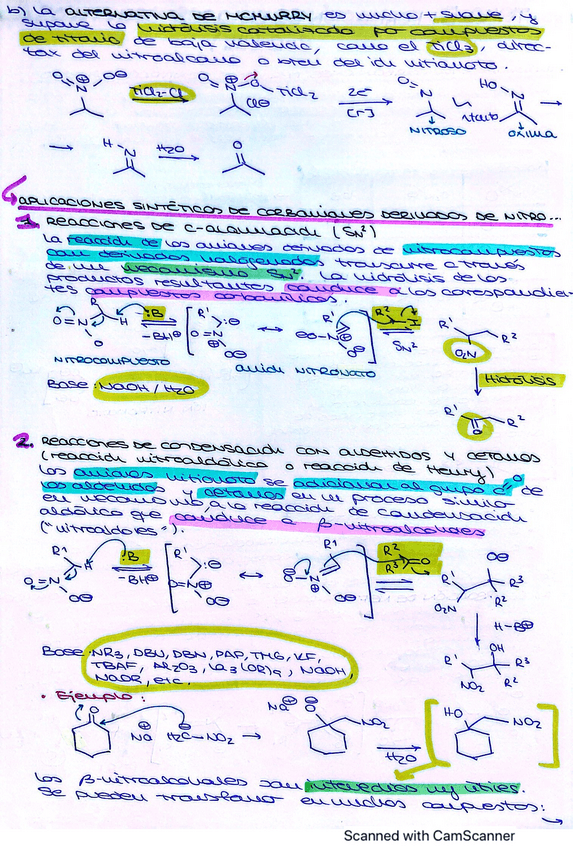 b) La ALTERNATIVA DE MCMURRY es mucho + suave, y
supone la hidrólisis catalizada por compuestos
de titanio de baja valencia, como el TiCl3, direc-
tax del nitroalcano o bien del ión nitronato.
TiCl2-Cl
O TiCl2
Cl⊖
2e⁻
[r]
NITROSO
tauto
HO
OXIMA
H N
H2O
O
APLICACIONES SINTÉTICAS DE CARBANIONES DERIVADOS DE NITRO...
1. REACCIONES DE C-ALQUILACIÓN (SN2)
La reacción de los aniones derivados de nitrocompuestos
con derivados halogenados transcurre a través
de un mecanismo SN2. La hidrólisis de los
productos resultantes conduce a los correspondien-
tes compuestos carbonílicos.
R' H :B -BH⊕ R' R' R2 SN2 R' R2
O2N
NITROCOMPUESTO
anión NITRONATO
Base: NaOH / H2O
Hidrólisis
R' R2
O
2. REACCIONES DE CONDENSACIÓN CON ALDEHÍDOS Y CETONAS
(reacción nitroaldólica o reacción de Henry)
Los aniones nitronato se adicionan al grupo C=O de
los aldehídos y cetonas en un proceso similar
en mecanismo a la reacción de condensación
aldólica que conduce a β-nitroalcoholes
("nitroaldoles").
R1 H :B -BH⊕ R' R1 R2 R3 O O⊖ R' R3 R2
O2N
H-B⊕
OH
R' R3
NO2 R2
Base: NR3, DBU, DBN, PAP, TMG, KF,
TBAF, Al2O3, La3(OR)9, NaOH,
NaOR, etc.
• Ejemplo:
O Na⊕ H2C-NO2 → Na⊕ ⊖O NO2 H2O HO NO2
Los β-nitroalcoholes son intermedios muy útiles.
Se pueden transformar en muchos compuestos:
Scanned with CamScanner